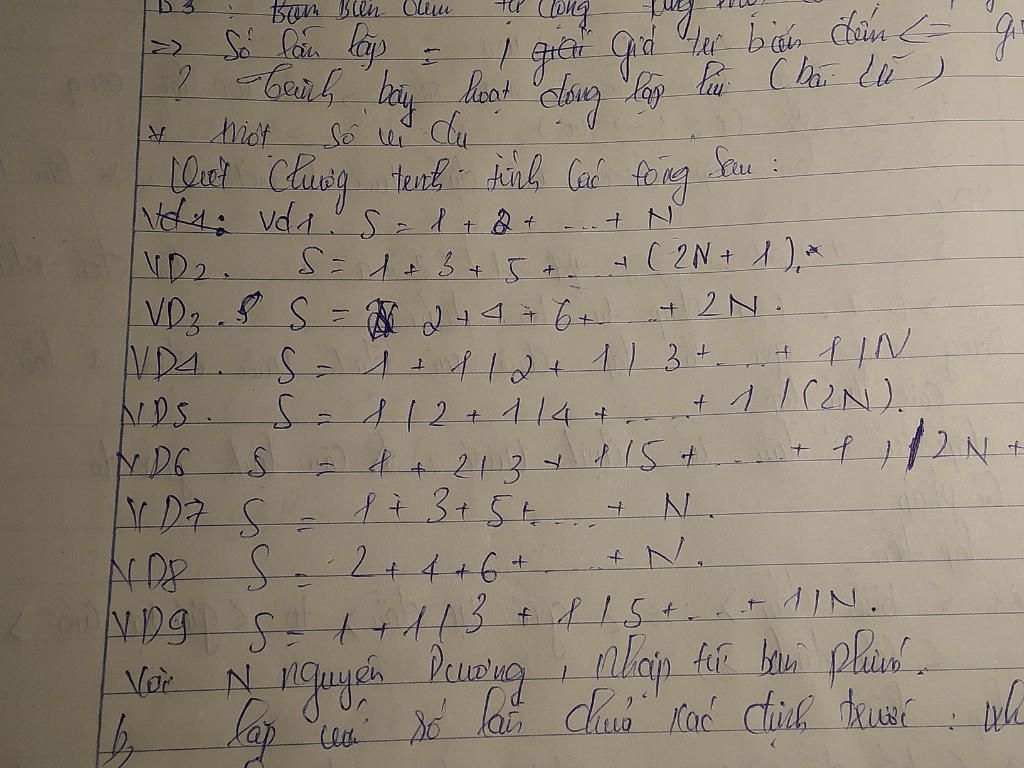 => Số lần lặp = 1 giá trị biến đếm <= gi
? Trình bày hoạt động lặp lùi (bài cũ)
* Một số ví dụ
Viết chương trình tính các tổng sau:
Vd1: Vd1. S = 1 + 2 + ... + N
VD2. S = 1 + 3 + 5 + ... + (2N + 1).
VD3. S = 2 + 4 + 6 + ... + 2N.
VD4. S = 1 + 1/2 + 1/3 + ... + 1/N
VD5. S = 1/2 + 1/4 + ... + 1/(2N).
VD6 S = 1 + 2/3 + 1/5 + ... + 1 / 2N +
VD7 S = 1 + 3 + 5 + ... + N.
VD8 S = 2 + 4 + 6 + ... + N.
VD9 S = 1 + 1/3 + 1/5 + ... + 1/N.
Với N nguyên Dương, nhập từ bàn phím.
b, lặp với số lần chưa xác định trước: